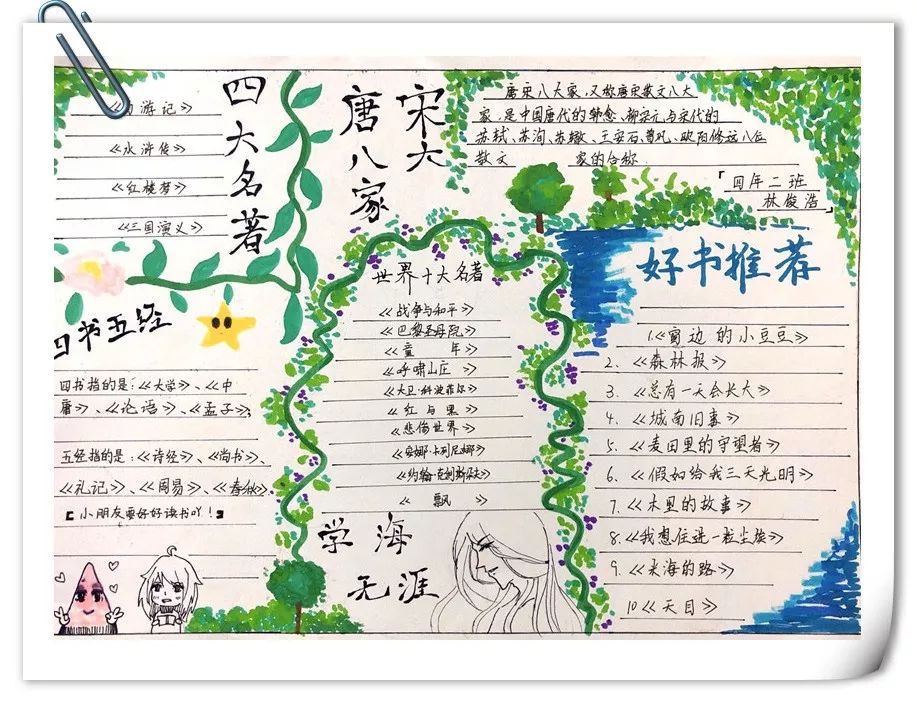 四大名著
游记》
《水浒传》
《红楼梦》
《三国演义》
唐宋
八大
家
唐宋八大家,又称唐宋散文八大
家,是中国唐代的韩愈、柳宗元与宋代的
苏轼、苏洵、苏辙、王安石、曾巩、欧阳修这八位
散文 家的合称.
「四年二班
林俊浩」
四书五经
四书指的是:《大学》、《中
庸》、《论语》、《孟子》;
五经指的是:《诗经》、《尚书》、
《礼记》、《周易》、《春秋》
【小朋友要好好读书吖!】
世界十大名著
《战争与和平》
《巴黎圣母院》
《童 年》
《呼啸山庄》
《大卫·科波菲尔》
《红与黑》
《悲伤世界》
《安娜·卡列尼娜》
《约翰·克利斯朵夫》
《飘》
学海
无涯
好书推荐
1.《窗边的小豆豆》
2.《森林报》
3.《总有一天会长大》
4.《城南旧事》
5.《麦田里的守望者》
6.《假如给我三天光明》
7.《木里的故事》
8.《我想住进一粒尘埃》
9.《 海的路》
10《天目》